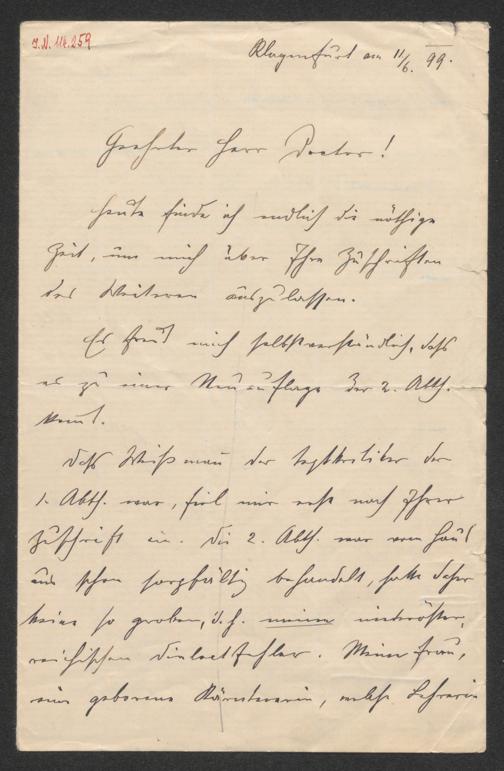 I.N. 116.259
Klagenfurt am 11/6. 99.
Geehrter Herr Doctor!
Heute finde ich endlich die nöthige
Zeit, um mich über Ihre Zuschriften
des Weiteren auszulassen.
Es freut mich selbstverständlich, dass
es zu einer Neuauflage der 2. Abth.
kommt.
Dass Weißmann der Textkritiker der
1. Abth. war, fiel mir erst nach Ihrer
Zuschrift ein. Die 2. Abth. war von Haus
aus schon sorgfältig behandelt, hatte daher
keine so groben, d. h. meine niederöster-
reichischen Dialectfehler. Meine Frau,
eine geborene Kärntnerin, welche Lehrerin